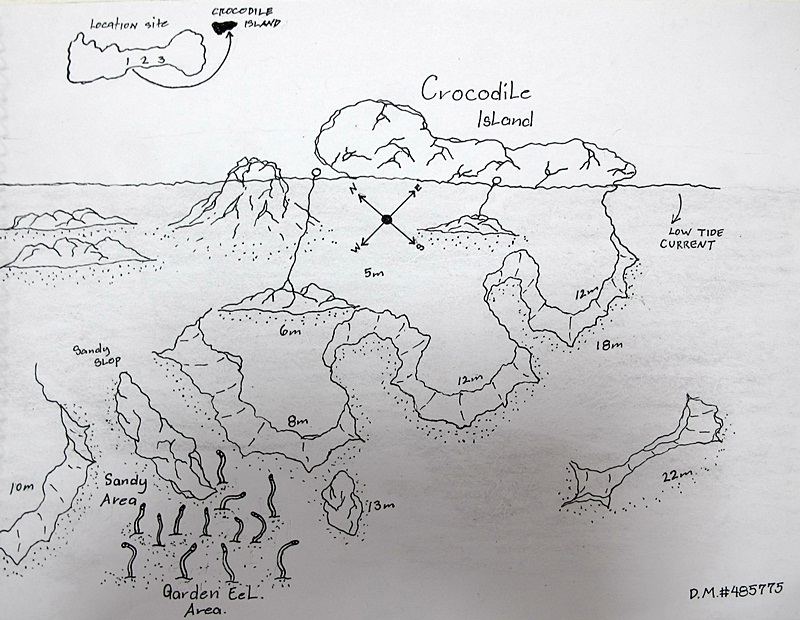 Location site
CROCODILE
ISLAND
1 2 3
Crocodile
Island
N
E
W
S
LOW TIDE
CURRENT
5m
12m
6m
18m
Sandy
Slop
12m
8m
10m
Sandy
Area
13m
22m
Garden Eel.
Area.
D.M.#485775